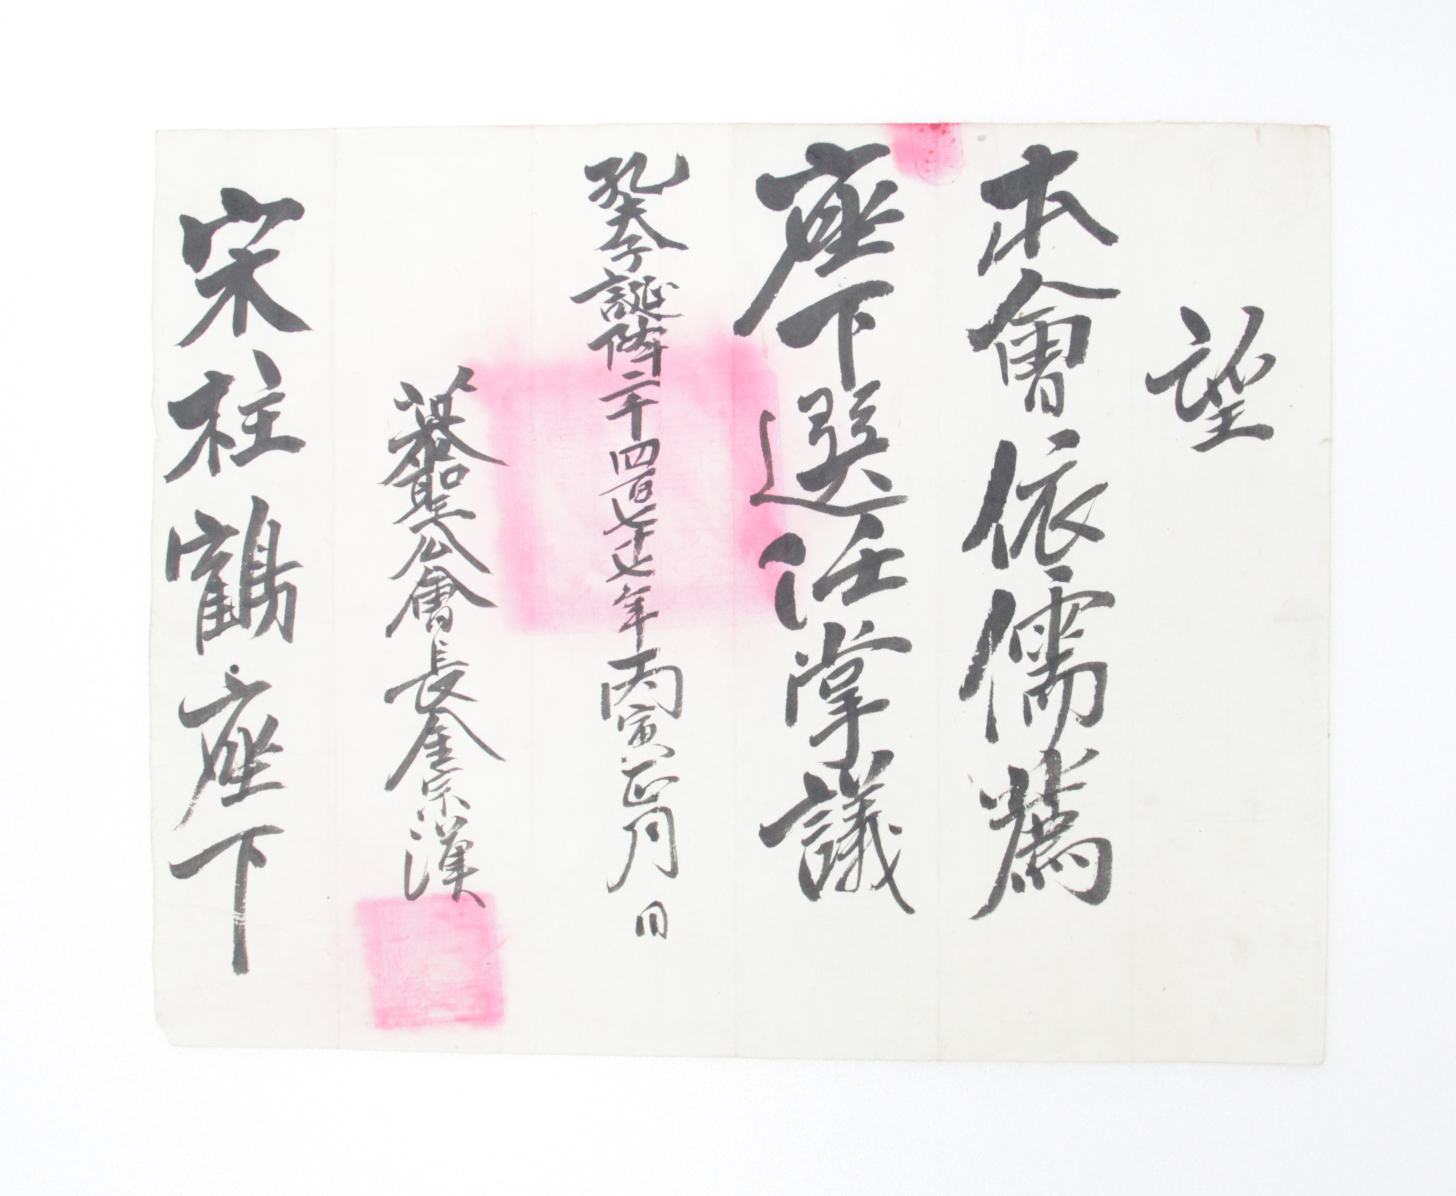 望
本會依儒薦
座下選任掌議
孔夫子誕降二千四百七十七年丙寅正月 日
慕聖公會長金宗漢
宋柱鶴座下